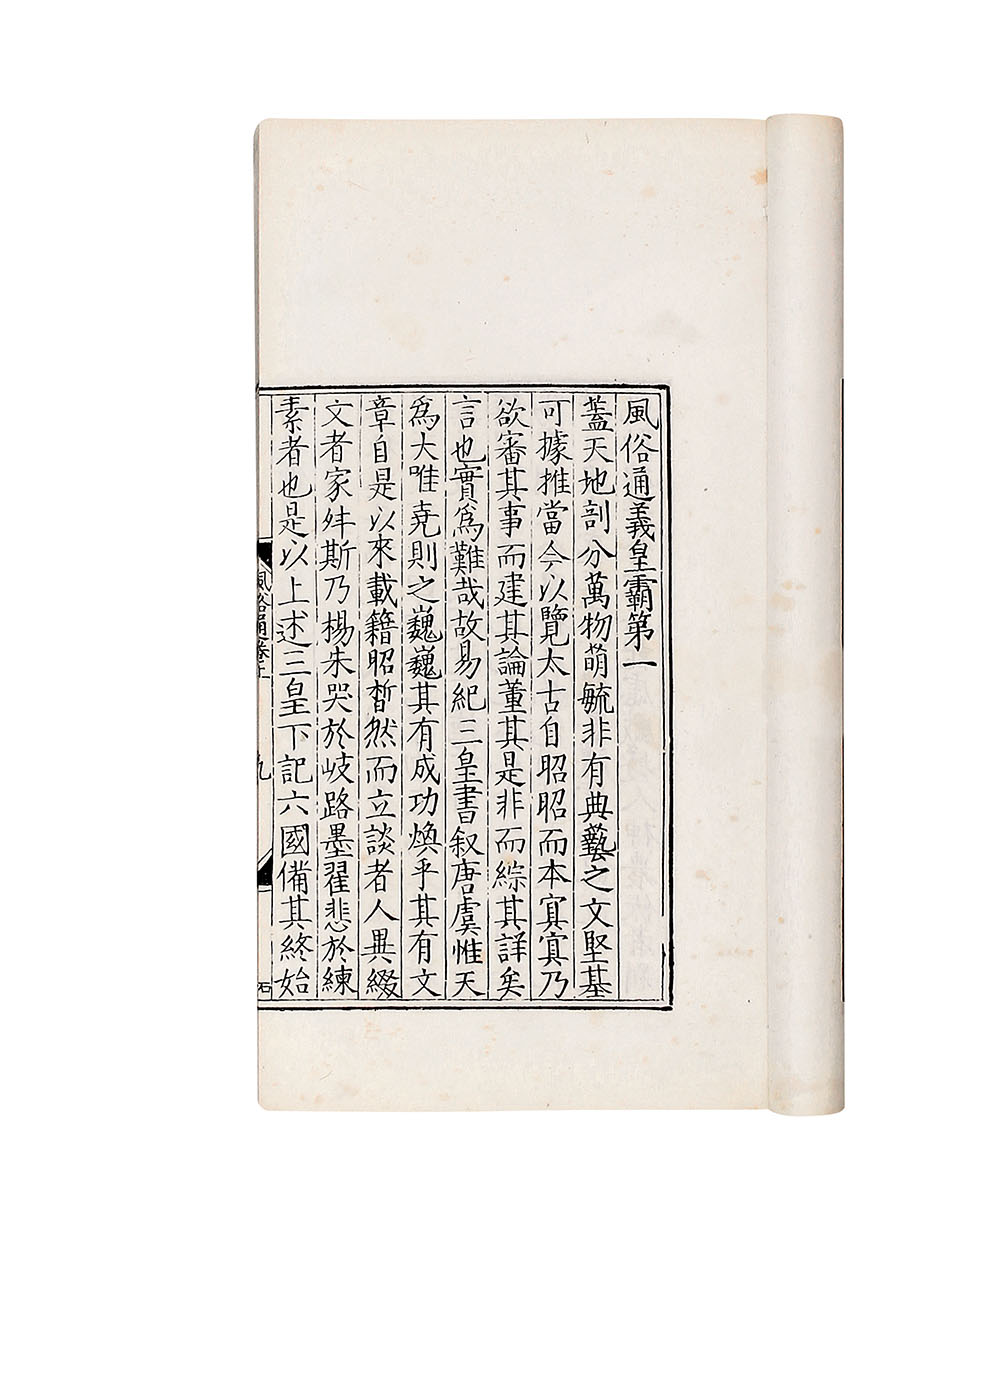 風俗通義皇霸第一
蓋天地剖分萬物萌毓非有典藝之文堅基
可據推當今以覽太古自昭昭而本㝠㝠乃
欲審其事而建其論董其是非而綜其詳矣
言也實爲難哉故易紀三皇書叙唐虞惟天
爲大唯堯則之巍巍其有成功煥乎其有文
章自是以來載籍昭晳然而立談者人異綴
文者家舛斯乃楊朱哭於岐路墨翟悲於練
素者也是以上述三皇下記六國備其終始
風俗通卷上
九